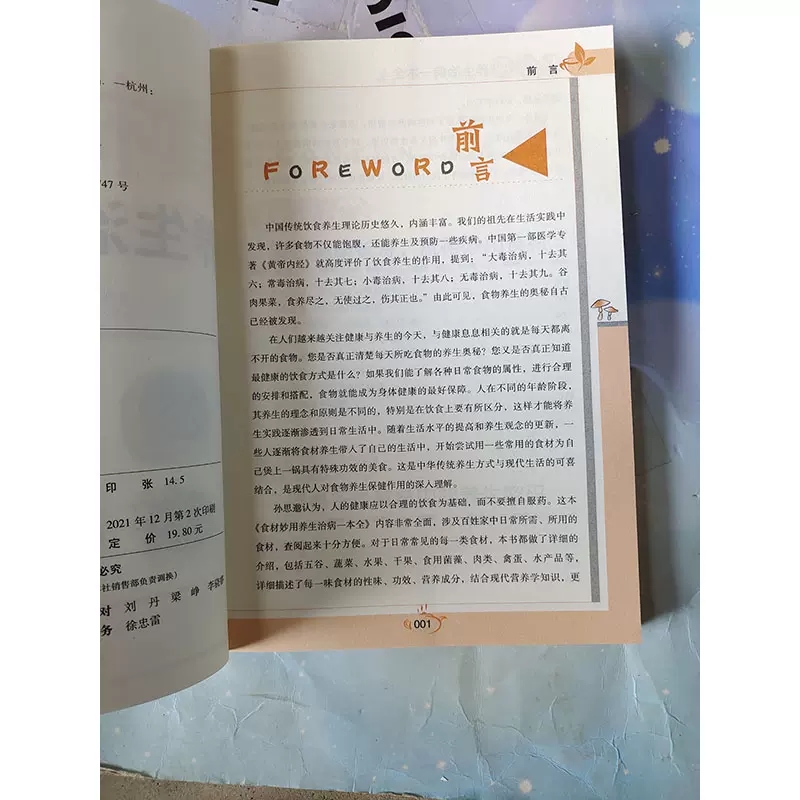 一杭州：
47 号
生治
印 张 14.5
2021 年 12 月第 2 次印刷
定 价 19.80 元
必究
社销售部负责调换）
对 刘 丹 梁 峥 李
务 徐忠雷
前 言
前言
FOREWORD
中国传统饮食养生理论历史悠久，内涵丰富。我们的祖先在生活实践中
发现，许多食物不仅能饱腹，还能养生及预防一些疾病。中国第一部医学专
著《黄帝内经》就高度评价了饮食养生的作用，提到：“大毒治病，十去其
六；常毒治病，十去其七；小毒治病，十去其八；无毒治病，十去其九。谷
肉果菜，食养尽之，无使过之，伤其正也。”由此可见，食物养生的奥秘自古
已经被发现。
在人们越来越关注健康与养生的今天，与健康息息相关的就是每天都离
不开的食物。您是否真正清楚每天所吃食物的养生奥秘？您又是否真正知道
最健康的饮食方式是什么？如果我们能了解各种日常食物的属性，进行合理
的安排和搭配，食物就能成为身体健康的最好保障。人在不同的年龄阶段，
其养生的理念和原则是不同的，特别是在饮食上要有所区分，这样才能将养
生实践逐渐渗透到日常生活中。随着生活水平的提高和养生观念的更新，一
些人逐渐将食材养生带入了自己的生活中，开始尝试用一些常用的食材为自
己煲上一锅具有特殊功效的美食。这是中华传统养生方式与现代生活的可喜
结合，是现代人对食物养生保健作用的深入理解。
孙思邈认为，人的健康应以合理的饮食为基础，而不要擅自服药。这本
《食材妙用养生治病一本全》内容非常全面，涉及百姓家中日常所需、所用的
食材，查阅起来十分方便。对于日常常见的每一类食材，本书都做了详细的
介绍，包括五谷、蔬菜、水果、干果、食用菌藻、肉类、禽蛋、水产品等，
详细描述了每一味食材的性味、功效、营养成分，结合现代营养学知识，更
001